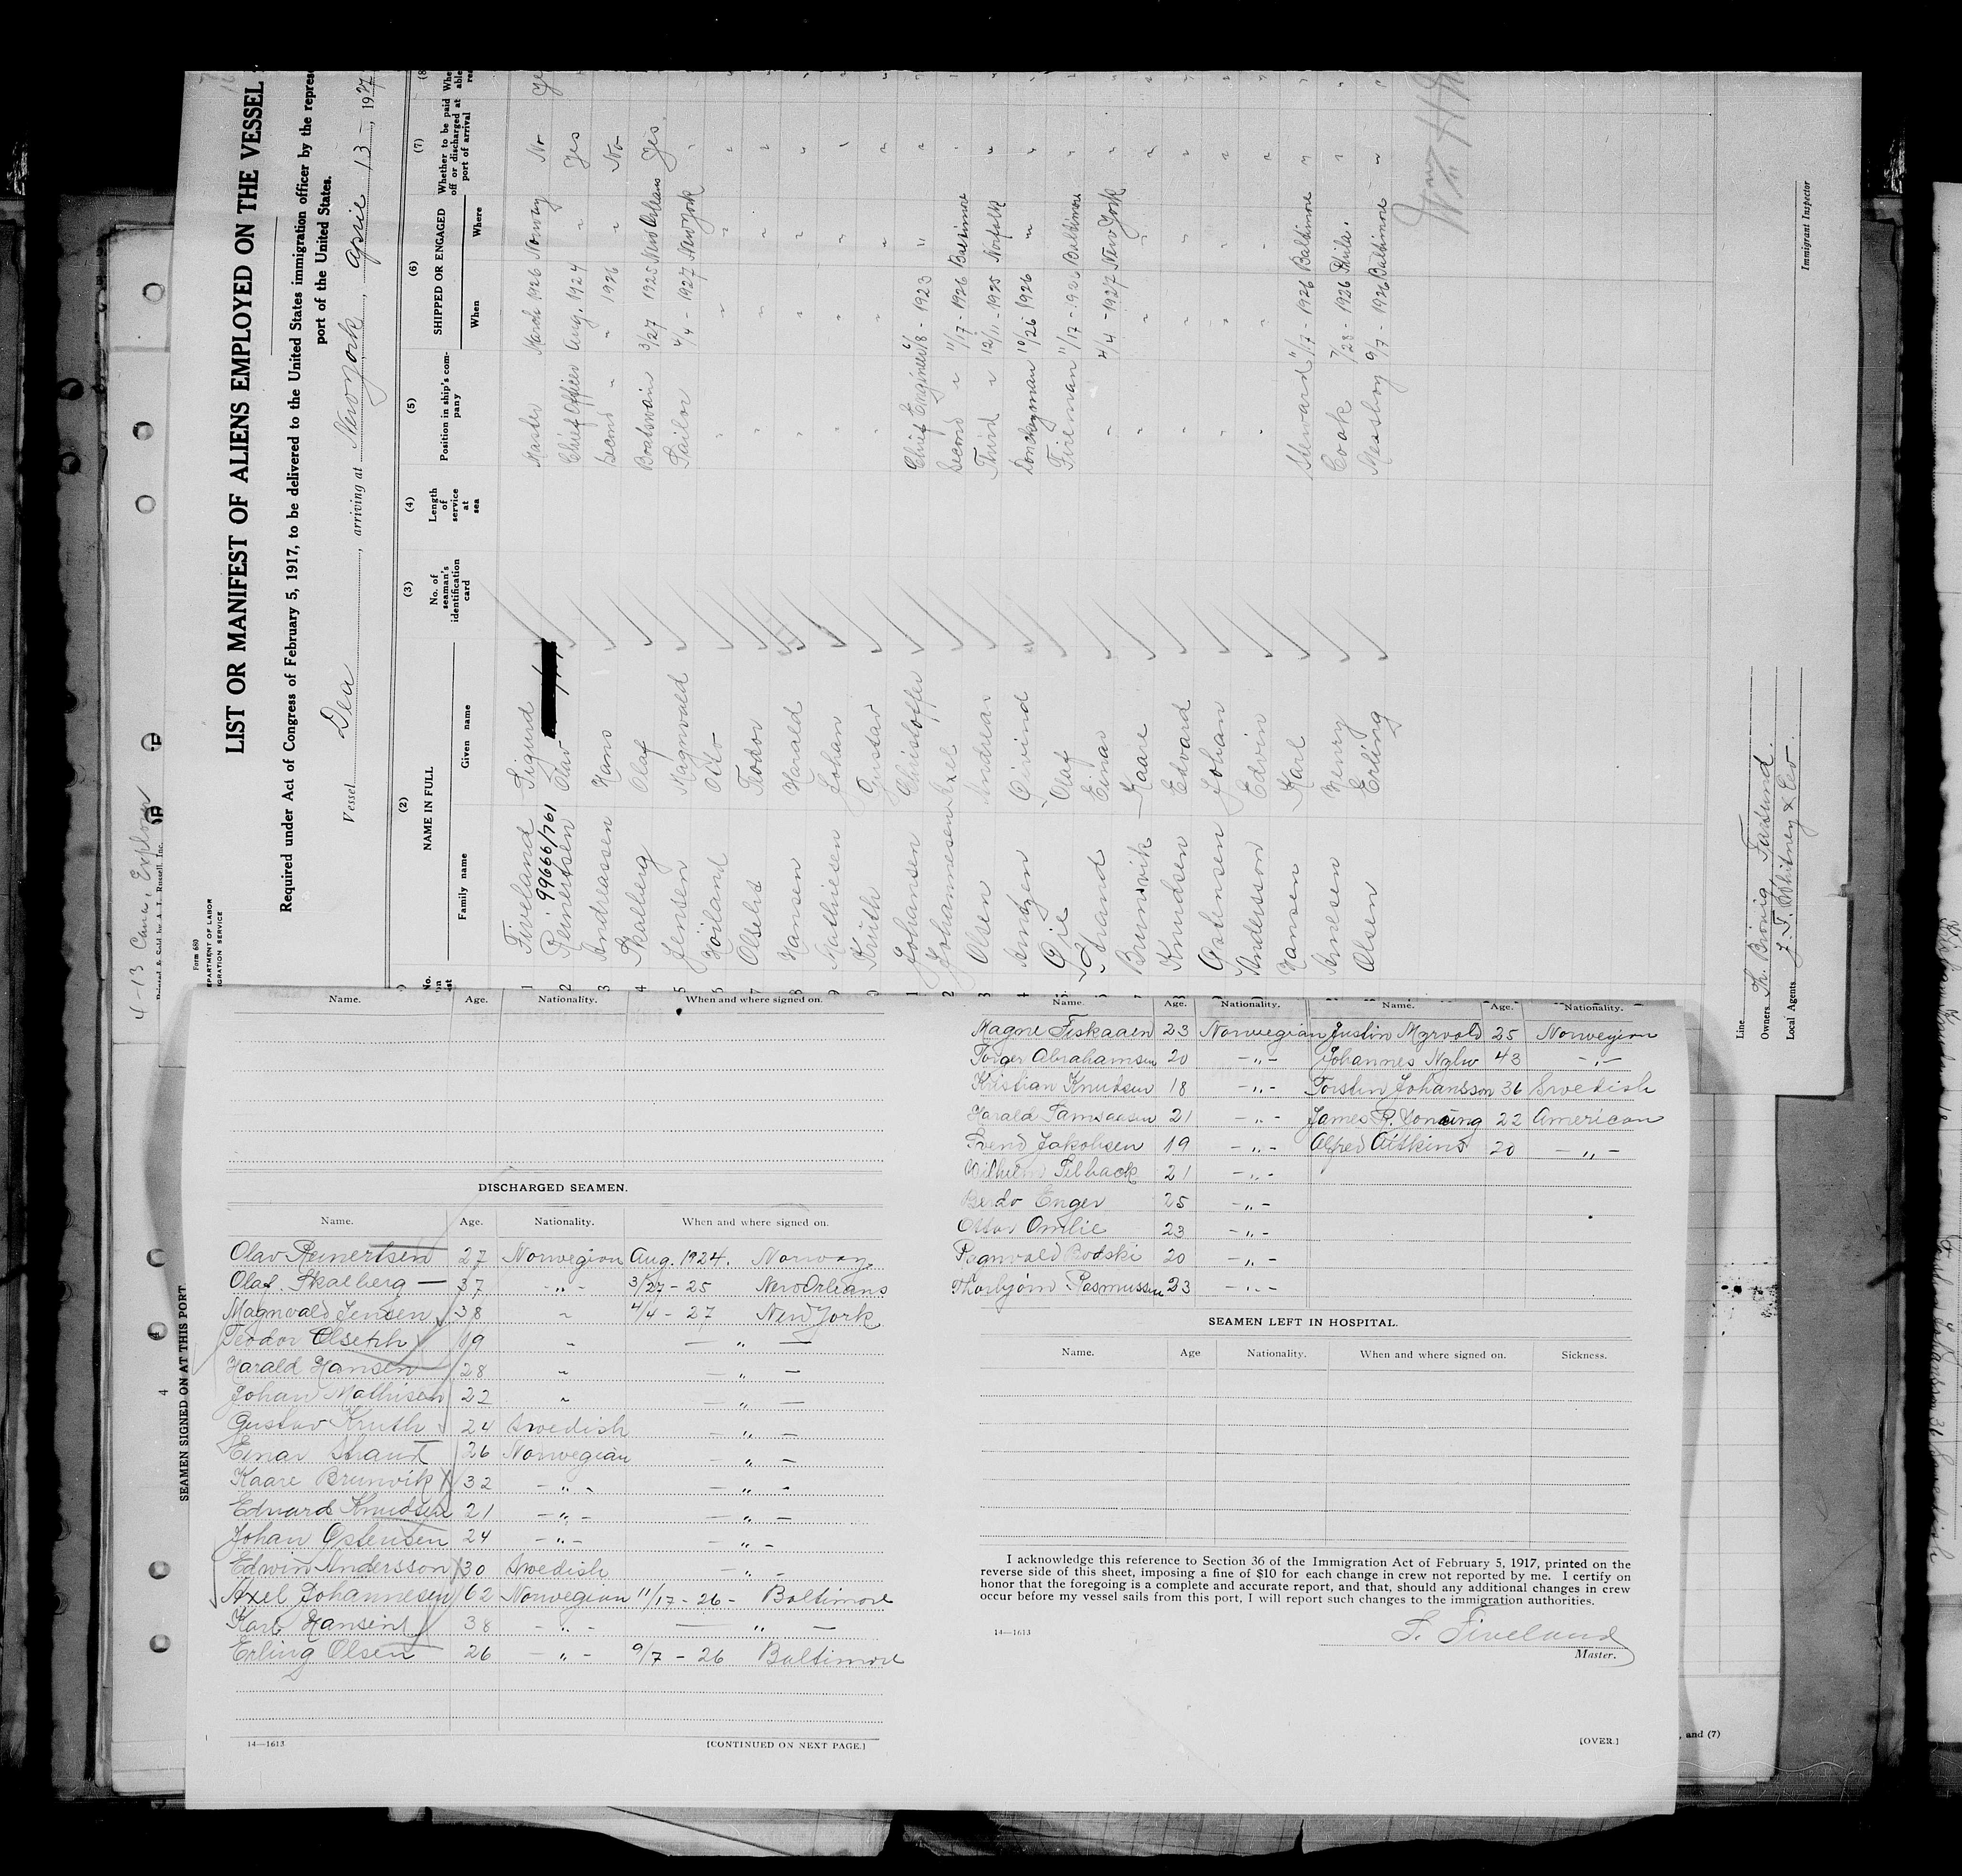 4-13 Cana, Explorer
Printed & Sold by A. T. Russell, Inc.
Form 680
DEPARTMENT OF LABOR
IMMIGRATION SERVICE
LIST OR MANIFEST OF ALIENS EMPLOYED ON THE VESSEL
Required under Act of Congress of February 5, 1917, to be delivered to the United States immigration officer by the repres
port of the United States.
Vessel Dea, arriving at New York, April 13, 1927
(2) (3) (4) (5) (6) (7) (8
No. on list
NAME IN FULL
Family name Given name
No. of seaman's identification card
Length of service at sea
Position in ship's company
SHIPPED OR ENGAGED
When Where
Whether to be paid off or discharged at port of arrival
1 Fiveland Sigurd Master March 1926 Norway No
99666/761
2 Reinertsen Olav Chief Officer Aug. 1924 " Yes
3 Andreassen Hans Second " " 1926 " No
4 Skalberg Olaf Boatswain 3/27 1925 New Orleans Yes
5 Jensen Magnvald Sailor 4/4 - 1927 New York "
6 Höiland Otto " " " "
7 Olseth Teodor " " " "
8 Hansen Harald " " " "
9 Mathiesen Johan " " " "
0 Kruth Gustav " " " "
1 Johansen Christoffer Chief Engineer 6/8 - 1923 " "
2 Johannesen Axel Second " 11/17 - 1926 Baltimore "
3 Olsen Andreas Third " 12/11 - 1925 Norfolk "
4 Öivind Donkeyman 10/26 1926 " "
5 Öie Olaf Fireman 11/17 - 1926 Baltimore "
6 Strand Einar " 4/4 - 1927 New York "
7 Brunvik Kaare " " " "
Knudsen Edvard " " " "
Ostensen Johan " " " "
Andersson Edvin " " " "
Hansen Karl Steward 11/17 - 1926 Baltimore "
Arnesen Henry Cook 7/28 - 1926 Phila. "
Olsen Erling Messboy 9/7 - 1926 Baltimore "
Wm H
Immigrant Inspector
Line
Owners Th. Brövig Farsund.
Local Agents J. F. Whitney & Co.
SEAMEN SIGNED ON AT THIS PORT
4
Name. Age. Nationality. When and where signed on.
DISCHARGED SEAMEN.
Name. Age. Nationality. When and where signed on.
Olav Reinertsen 27 Norwegian Aug. 1924. Norway
Olaf. Skalberg — 37 - " - 3/27 - 25 New Orleans
Magnvald Jensen 38 " 4/4 - 27 New York
Teodor Olseth 19 " — " —
Harald Hansen 28 " — " —
Johan Mathisen 22 " — " —
Gustav Kruth 24 Swedish — " —
Einar Strand 26 Norwegian — " —
Kaare Brunvik 32 - " - — " -
Edvard Knudsen 21 - " - — " —
Johan Ostensen 24 - " - — " -
Edwin Andersson 30 Swedish — " -
Axel Johannesen 62 Norwegian 11/17 - 26 - Baltimore
Karl Hansen 38 - " - — " —
Erling Olsen 26 - " - 9/7 - 26 Baltimore
14—1613 [CONTINUED ON NEXT PAGE.]
Name. Age. Nationality. Name. Age. Nationality.
Magne Fiskaaen 23 Norwegian Justin Myrvold 25 Norwegian
Torger Abrahamsen 20 - " - Johannes 43 - " -
Kristian Knudsen 18 - " - Torsten Johansson 36 Swedish
Harald 21 - " - James R. 22 American
Svend Jakobsen 19 - " - Alfred Aitkins 20 - " -
Vilhelm 21 - " -
Enger 25 - " -
Ottar Omlie 23 - " -
Ragnvald Bodski 20 - " -
Thorbjörn Rasmussen 23 - " -
SEAMEN LEFT IN HOSPITAL.
Name. Age Nationality. When and where signed on. Sickness.
I acknowledge this reference to Section 36 of the Immigration Act of February 5, 1917, printed on the
reverse side of this sheet, imposing a fine of $10 for each change in crew not reported by me. I certify on
honor that the foregoing is a complete and accurate report, and that, should any additional changes in crew
occur before my vessel sails from this port, I will report such changes to the immigration authorities.
14—1613
S. Fiveland
Master.
[OVER.]
, and (7)